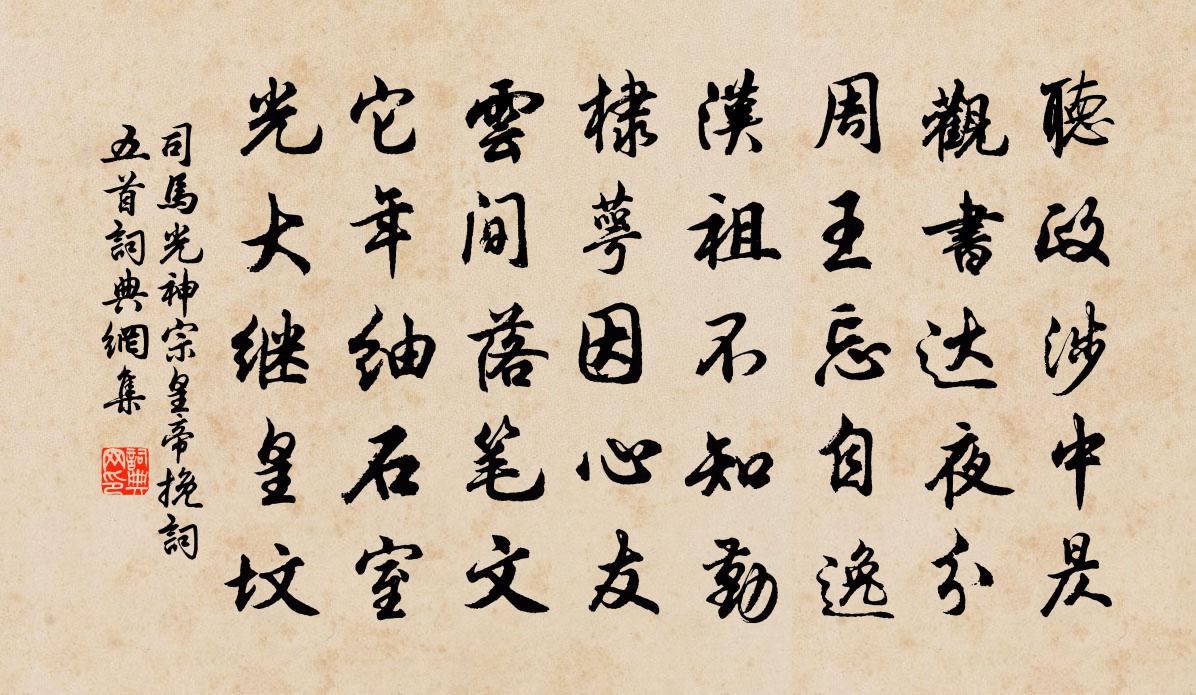 聽政涉中昃
觀書达夜分
周王忘自逸
漢祖不知勤
棣萼因心友
雲間落笔文
它年紬石室
光大继皇坟
司馬光神宗皇帝挽詞
五首詞典網集
詞典
网印